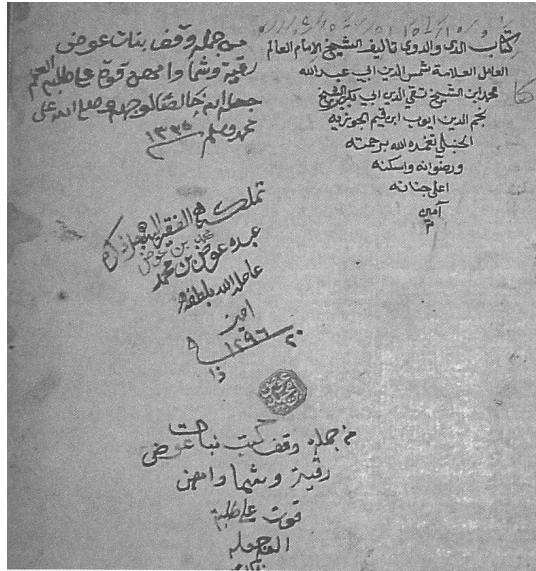 كتاب الدا والدوى تاليف الشيخ الامام العالم
العامل العلامة شمس الدين ابي عبد الله
محمد ابن الشيخ تقي الدين ابي بكر ابن الشيخ
نجم الدين ايوب ابن قيم الجوزيه
الحنبلي تغمده الله برحمته
ورضوانه واسكنه
اعلى جنانه
آمين
من جملة وقف بنات عوض
رقية وشما وامهن قوت على طلبة العلم
جعله الله خالصا لوجهه وصلى الله على
محمد وسلم ١٣٣٥
تملك هذا الفقير
عبده عوض بن محمد
عامله الله بلطفه
امين
٢٠ ١٢٩٦
من جملة وقف كتب بنات عوض
رقية وشما وامهن
قوت على طلبة
العلم جعله